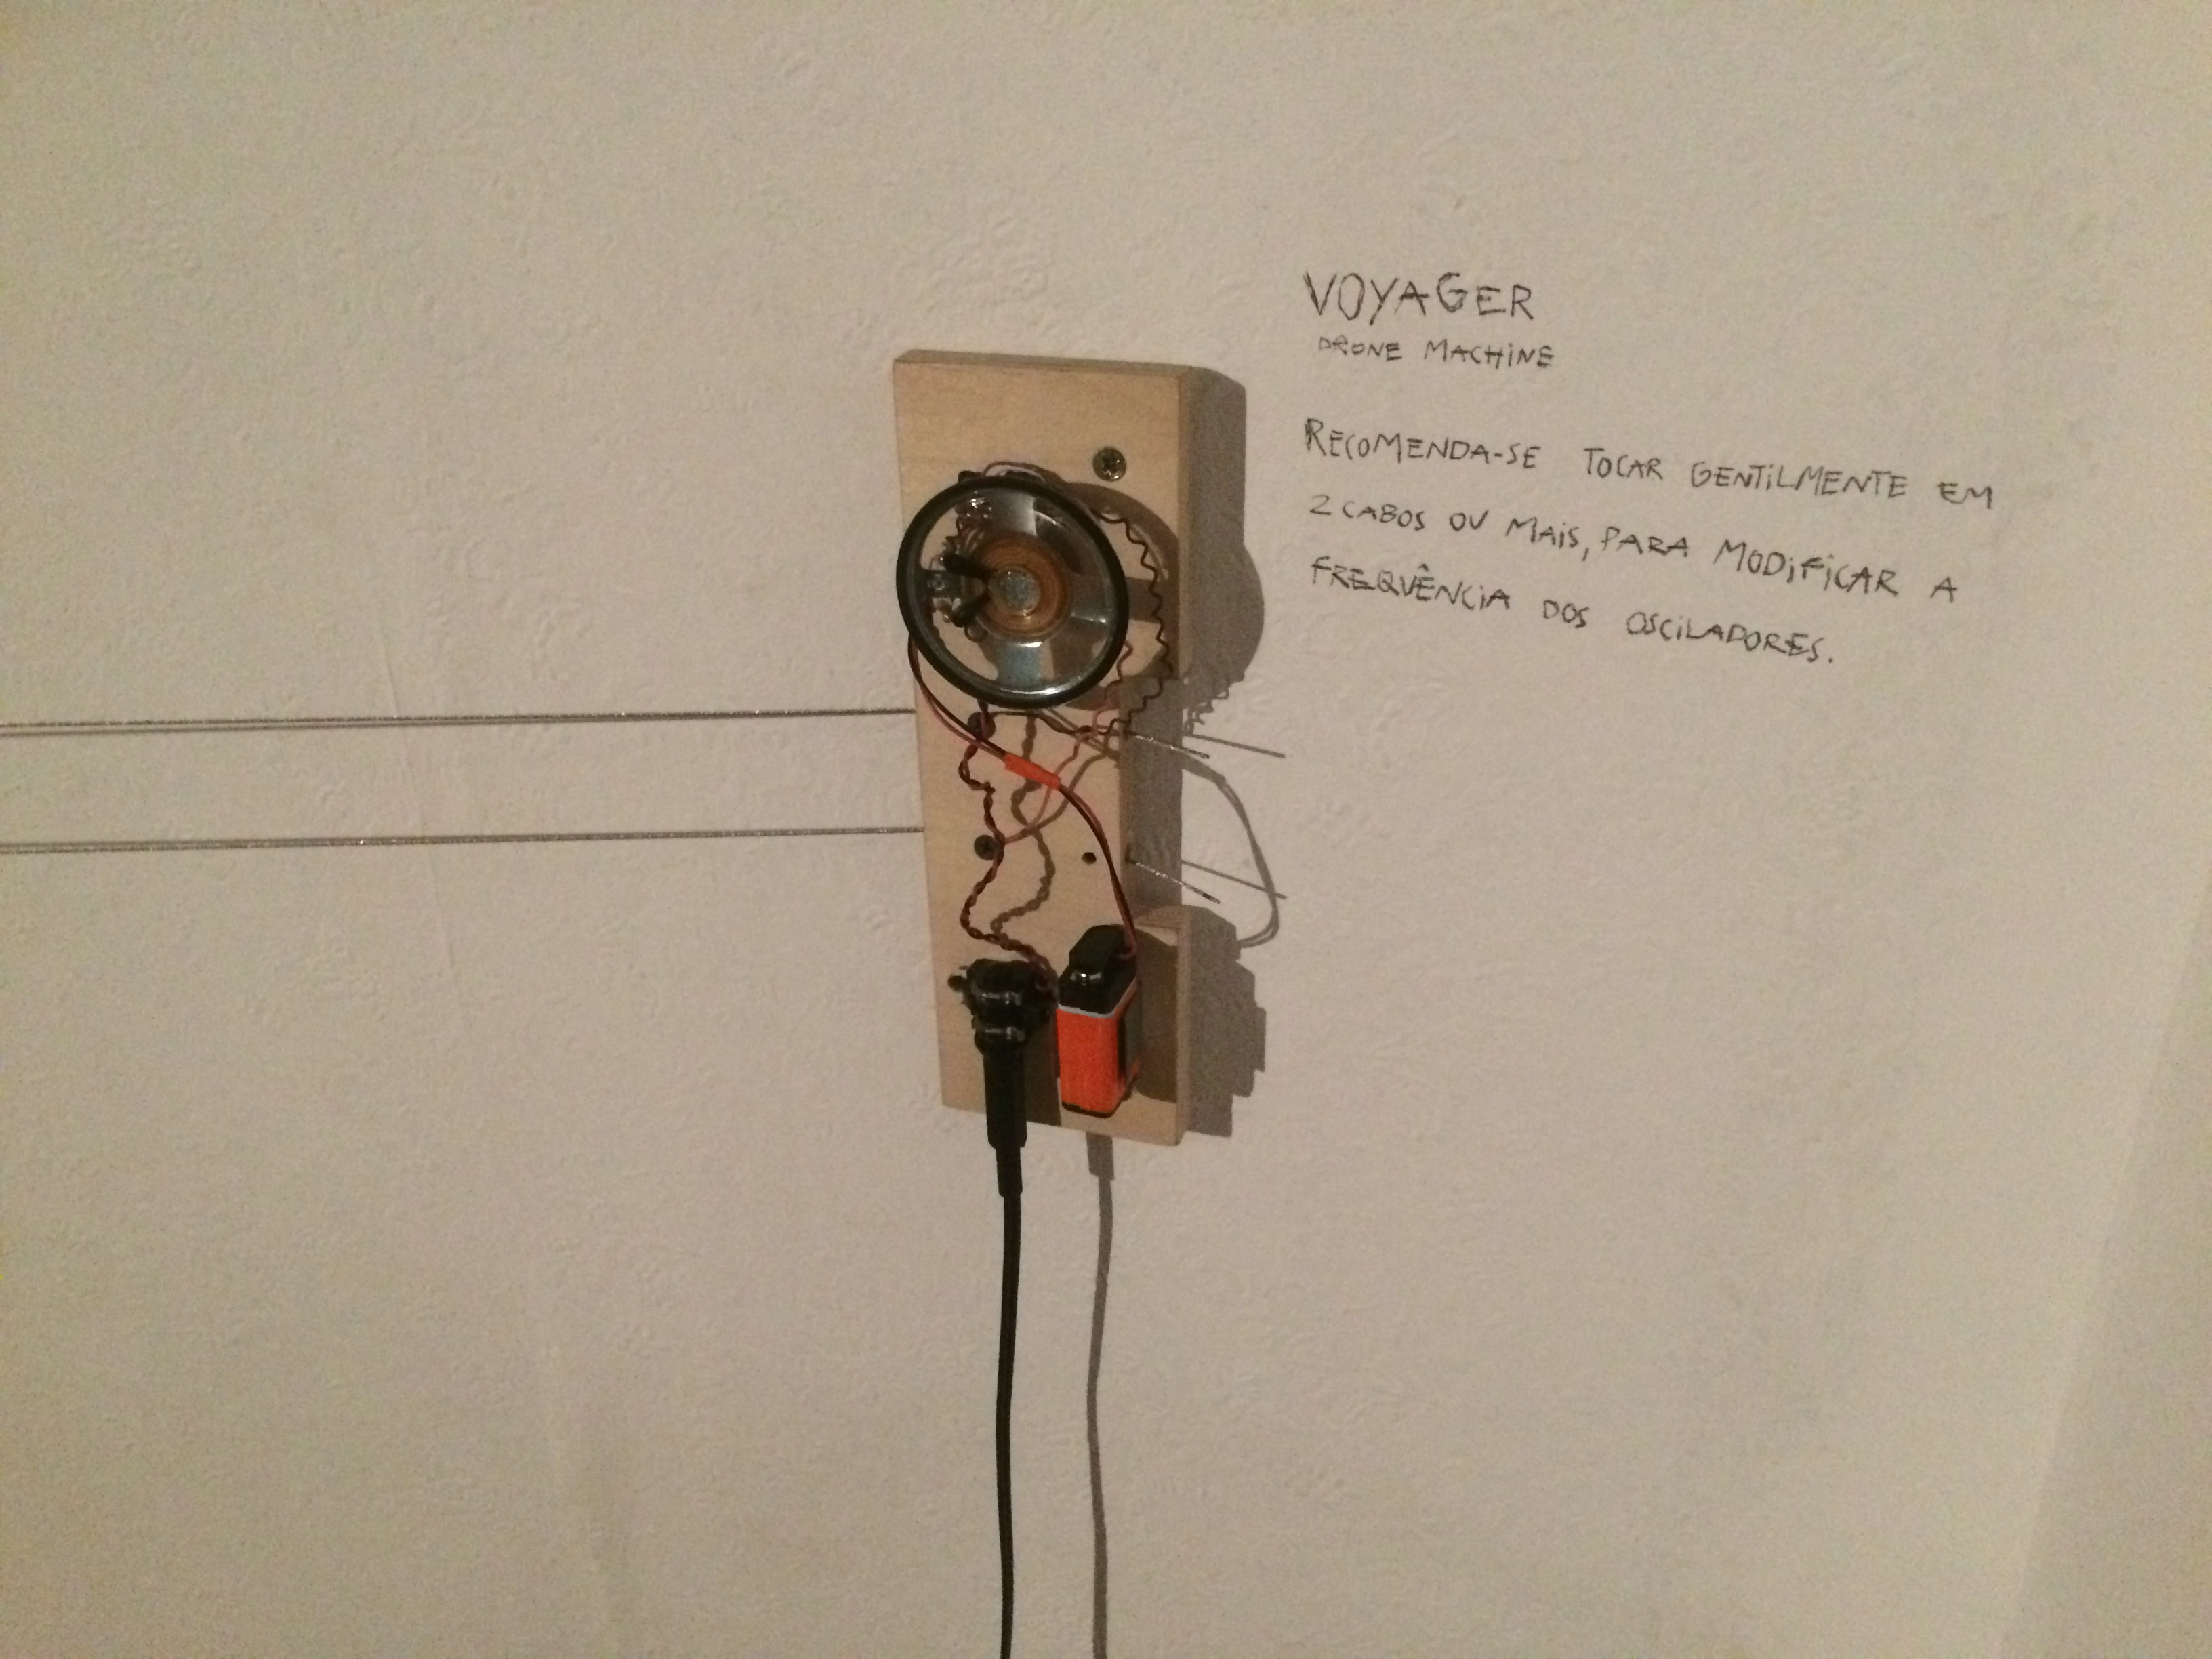 VOYAGER
DRONE MACHINE
RECOMENDA-SE TOCAR GENTILMENTE EM
2 CABOS OU MAIS, PARA MODIFICAR A
FREQUÊNCIA DOS OSCILADORES.